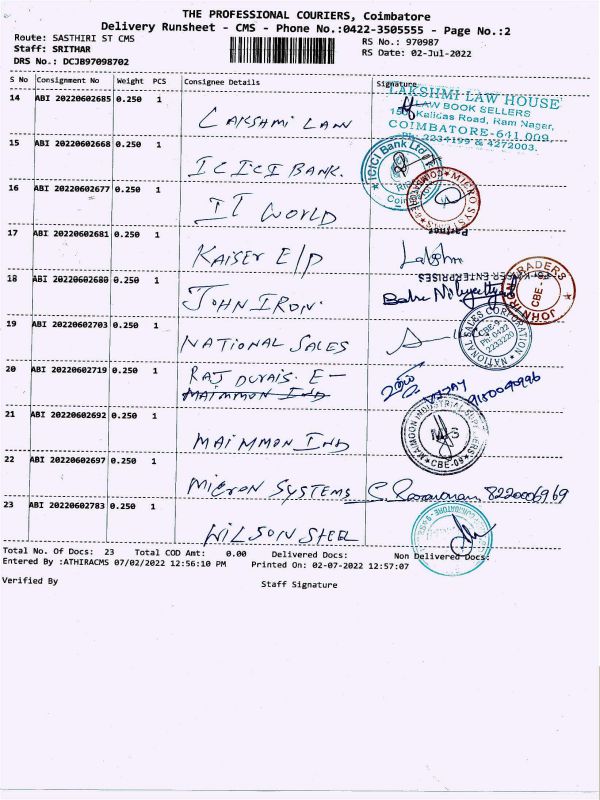 THE PROFESSIONAL COURIERS, Coimbatore
Delivery Runsheet - CMS - Phone No.:0422-3505555 - Page No.:2
Route: SASTHIRI ST CMS
RS No.: 970987
Staff: SRITHAR
RS Date: 02-Jul-2022
DRS No.: DCJB97098702
S No Consignment No Weight PCS Consignee Details Signature
14 ABI 20220602685 0.250 1
LAKSHMI LAW HOUSE
LAW BOOK SELLERS
Kalidas Road, Ram Nagar,
COIMBATORE-641 009.
Ph: 2234199 & 4272003.
LAKSHMI LAW
15 ABI 20220602668 0.250 1
ICICI BANK.
ICICI Bank Ltd
16 ABI 20220602677 0.250 1
IT WORLD
MICRO SYS
COIMBATORE
17 ABI 20220602681 0.250 1
Partner
KAISER E/P
Lakshmi
KAISER ENTERPRISES
18 ABI 20220602680 0.250 1
JOHN IRON.
JOHN IRON TRADERS
CBE -
19 ABI 20220602703 0.250 1
NATIONAL SALES
NATIONAL SALES CORPORATION
CBE-9
Ph: 0422
2233220
20 ABI 20220602719 0.250 1
RAJ DURAIS. E -
MAIMMON IND
VIJAY
9150090996
21 ABI 20220602692 0.250 1
MAIMMON IND
MAIMOON INDUSTRIAL SUPPLIERS
MIS
CBE-09
22 ABI 20220602697 0.250 1
MICRON SYSTEMS C. Saravanan, 8220006969
23 ABI 20220602783 0.250 1
WILSON STEEL
Total No. Of Docs: 23 Total COD Amt: 0.00 Delivered Docs: Non Delivered Docs:
Entered By :ATHIRACMS 07/02/2022 12:56:10 PM Printed On: 02-07-2022 12:57:07
Verified By Staff Signature